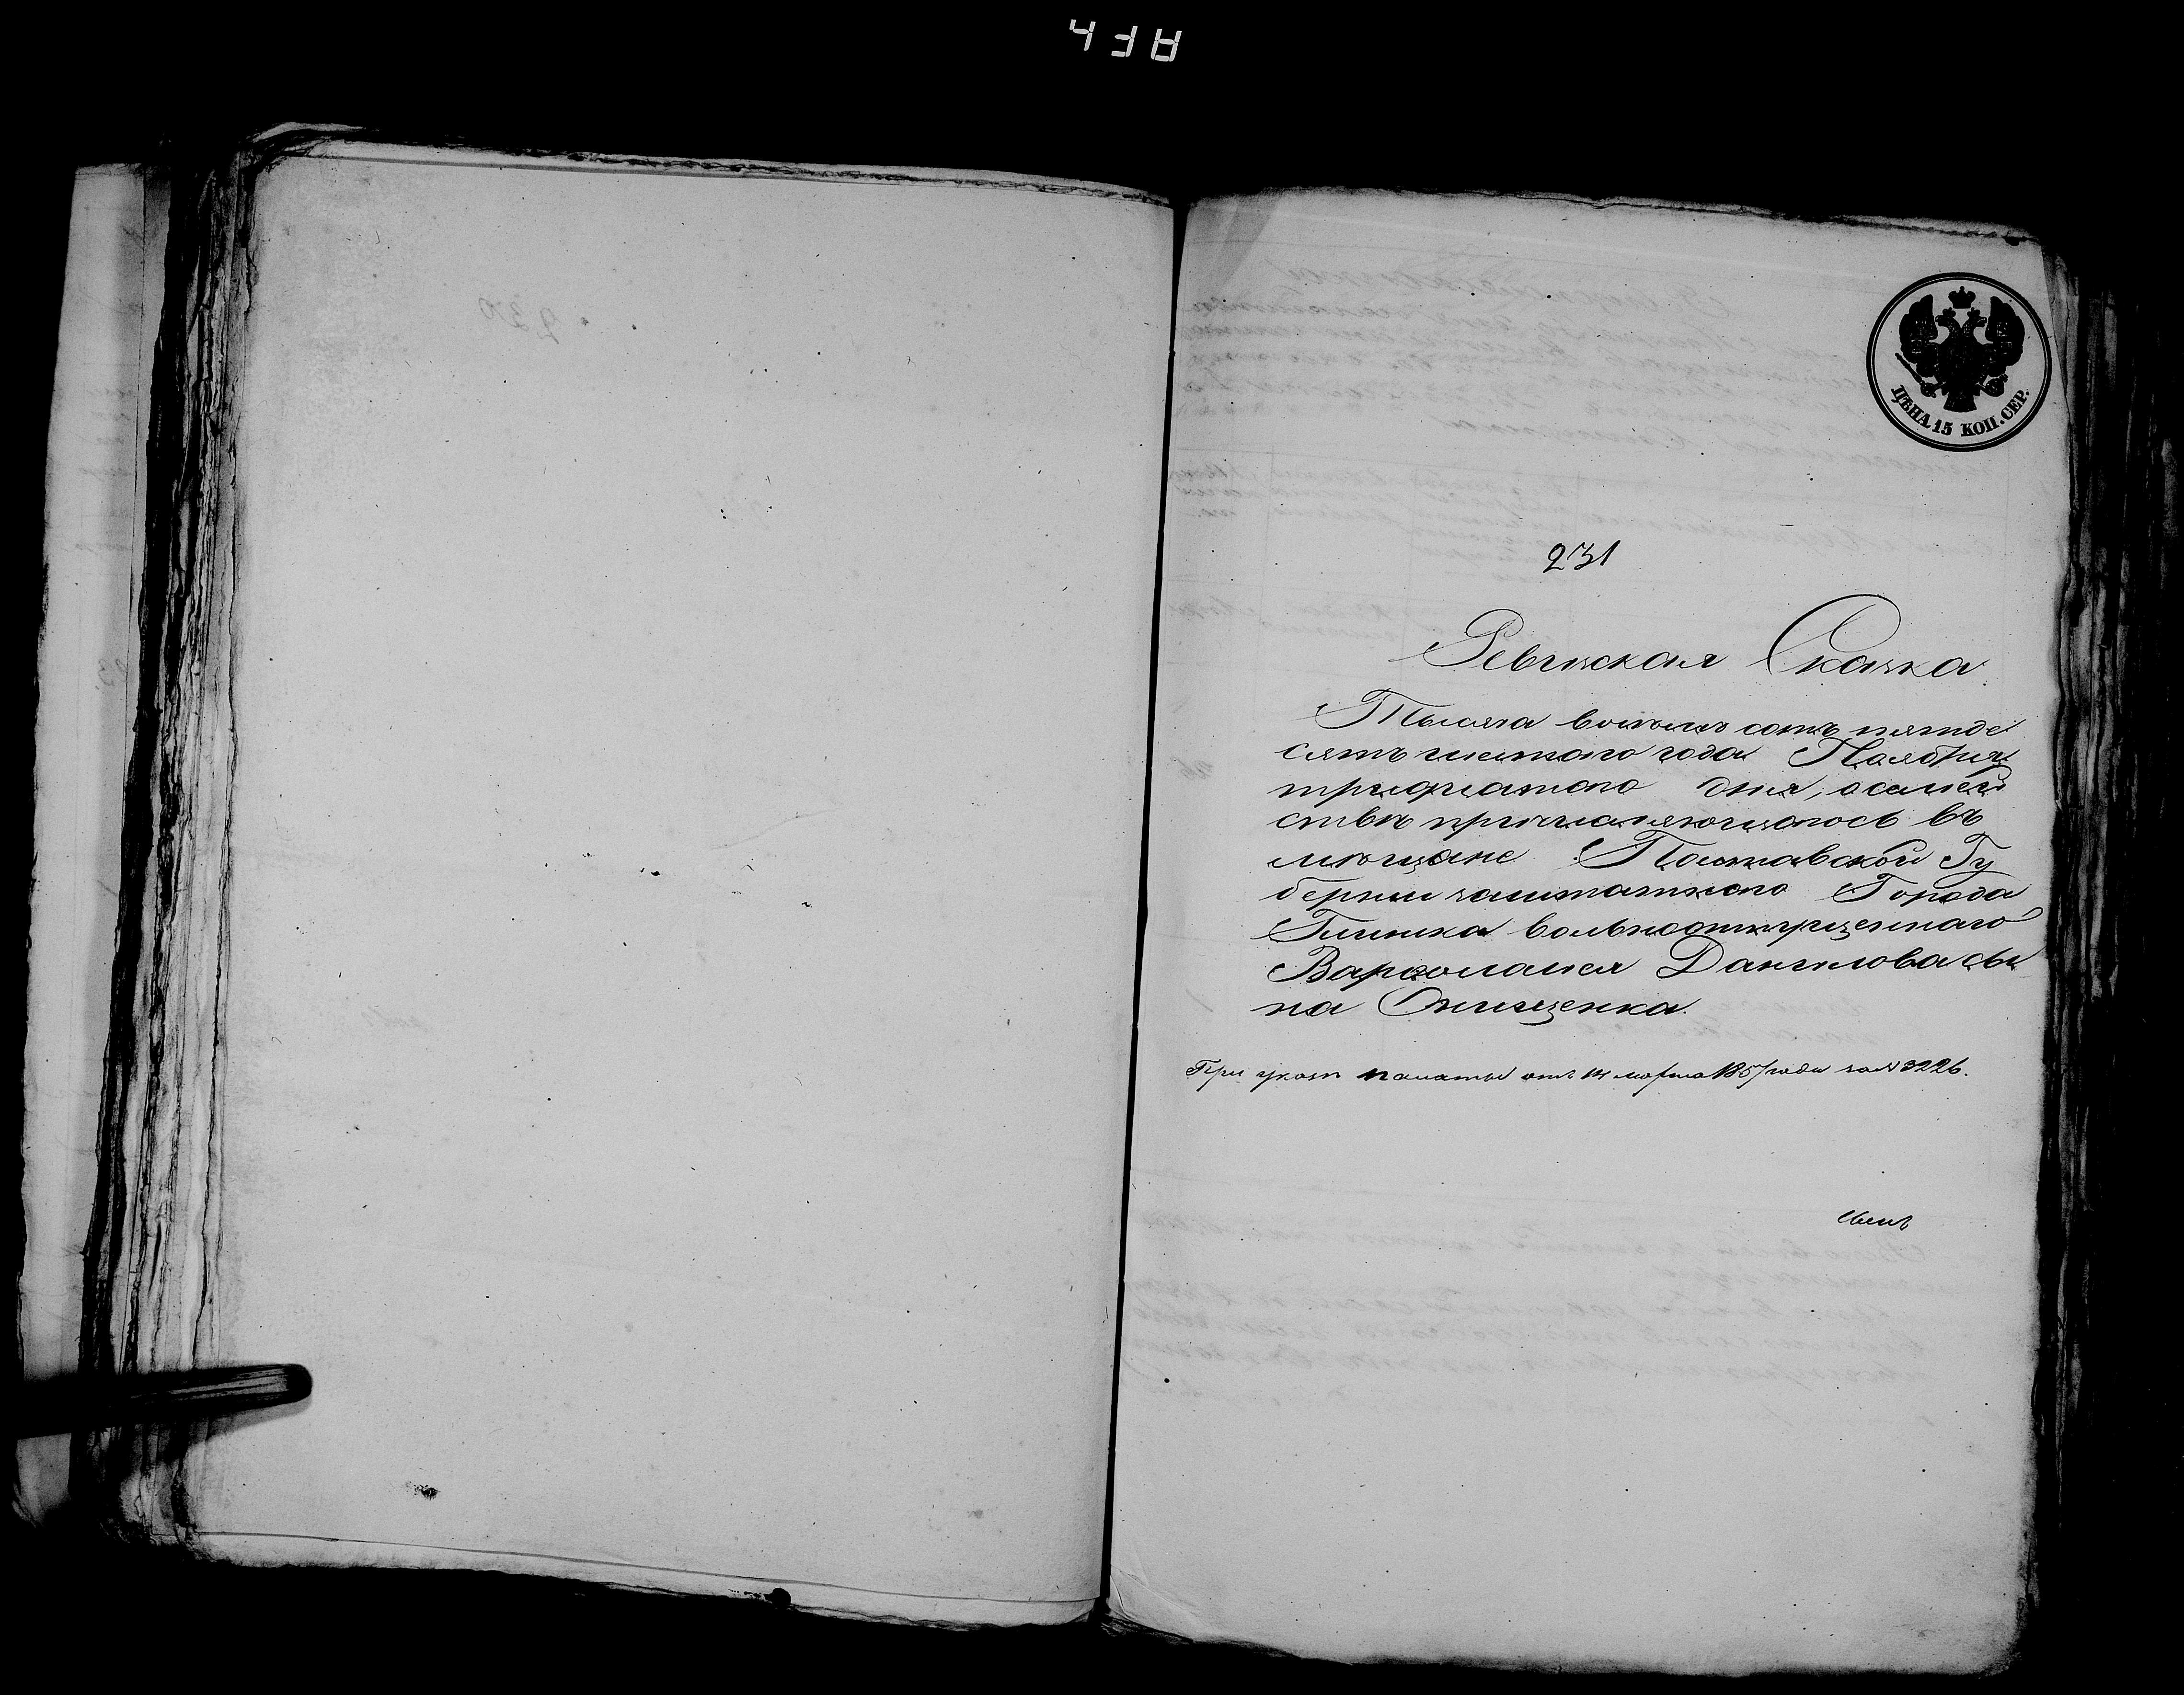 4FA
ЦѢНА 15 КОП. СЕР.
231
Ревизская Сказка
Тысяча восемь сотъ пятде
сятъ шестого года Ноября
тридцатого дня, о семей
ствѣ причисляющагось въ
мѣщане Полтавской Гу
берніи заштатного Города
Глинска вольноотпущеннаго
Варѳоламея Данилова сы
на Онищенка.
При указѣ палаты отъ 14 марта 1857 года за № 3226.